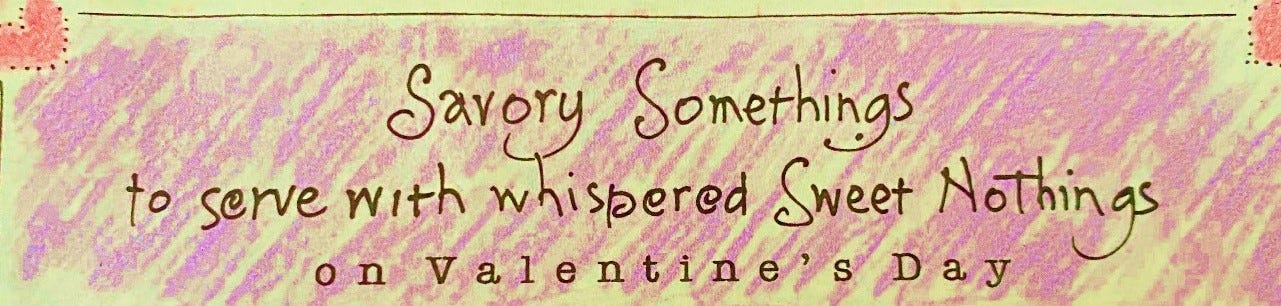 Savory Somethings
to serve with whispered Sweet Nothings
on Valentine's Day